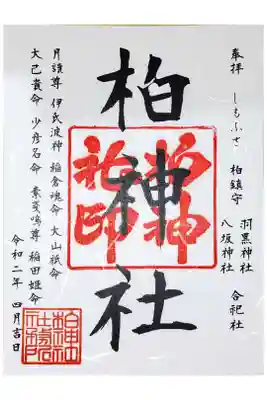 奉拝 しもふさ 柏鎮守
羽黒神社
八坂神社
合祀社
柏神社
柏神
社印
月読尊 伊氏波神 稲倉魂命 大山祇命
大己貴命 少彦名命 素戔嗚尊 稲田姫命
令和二年 四月吉日